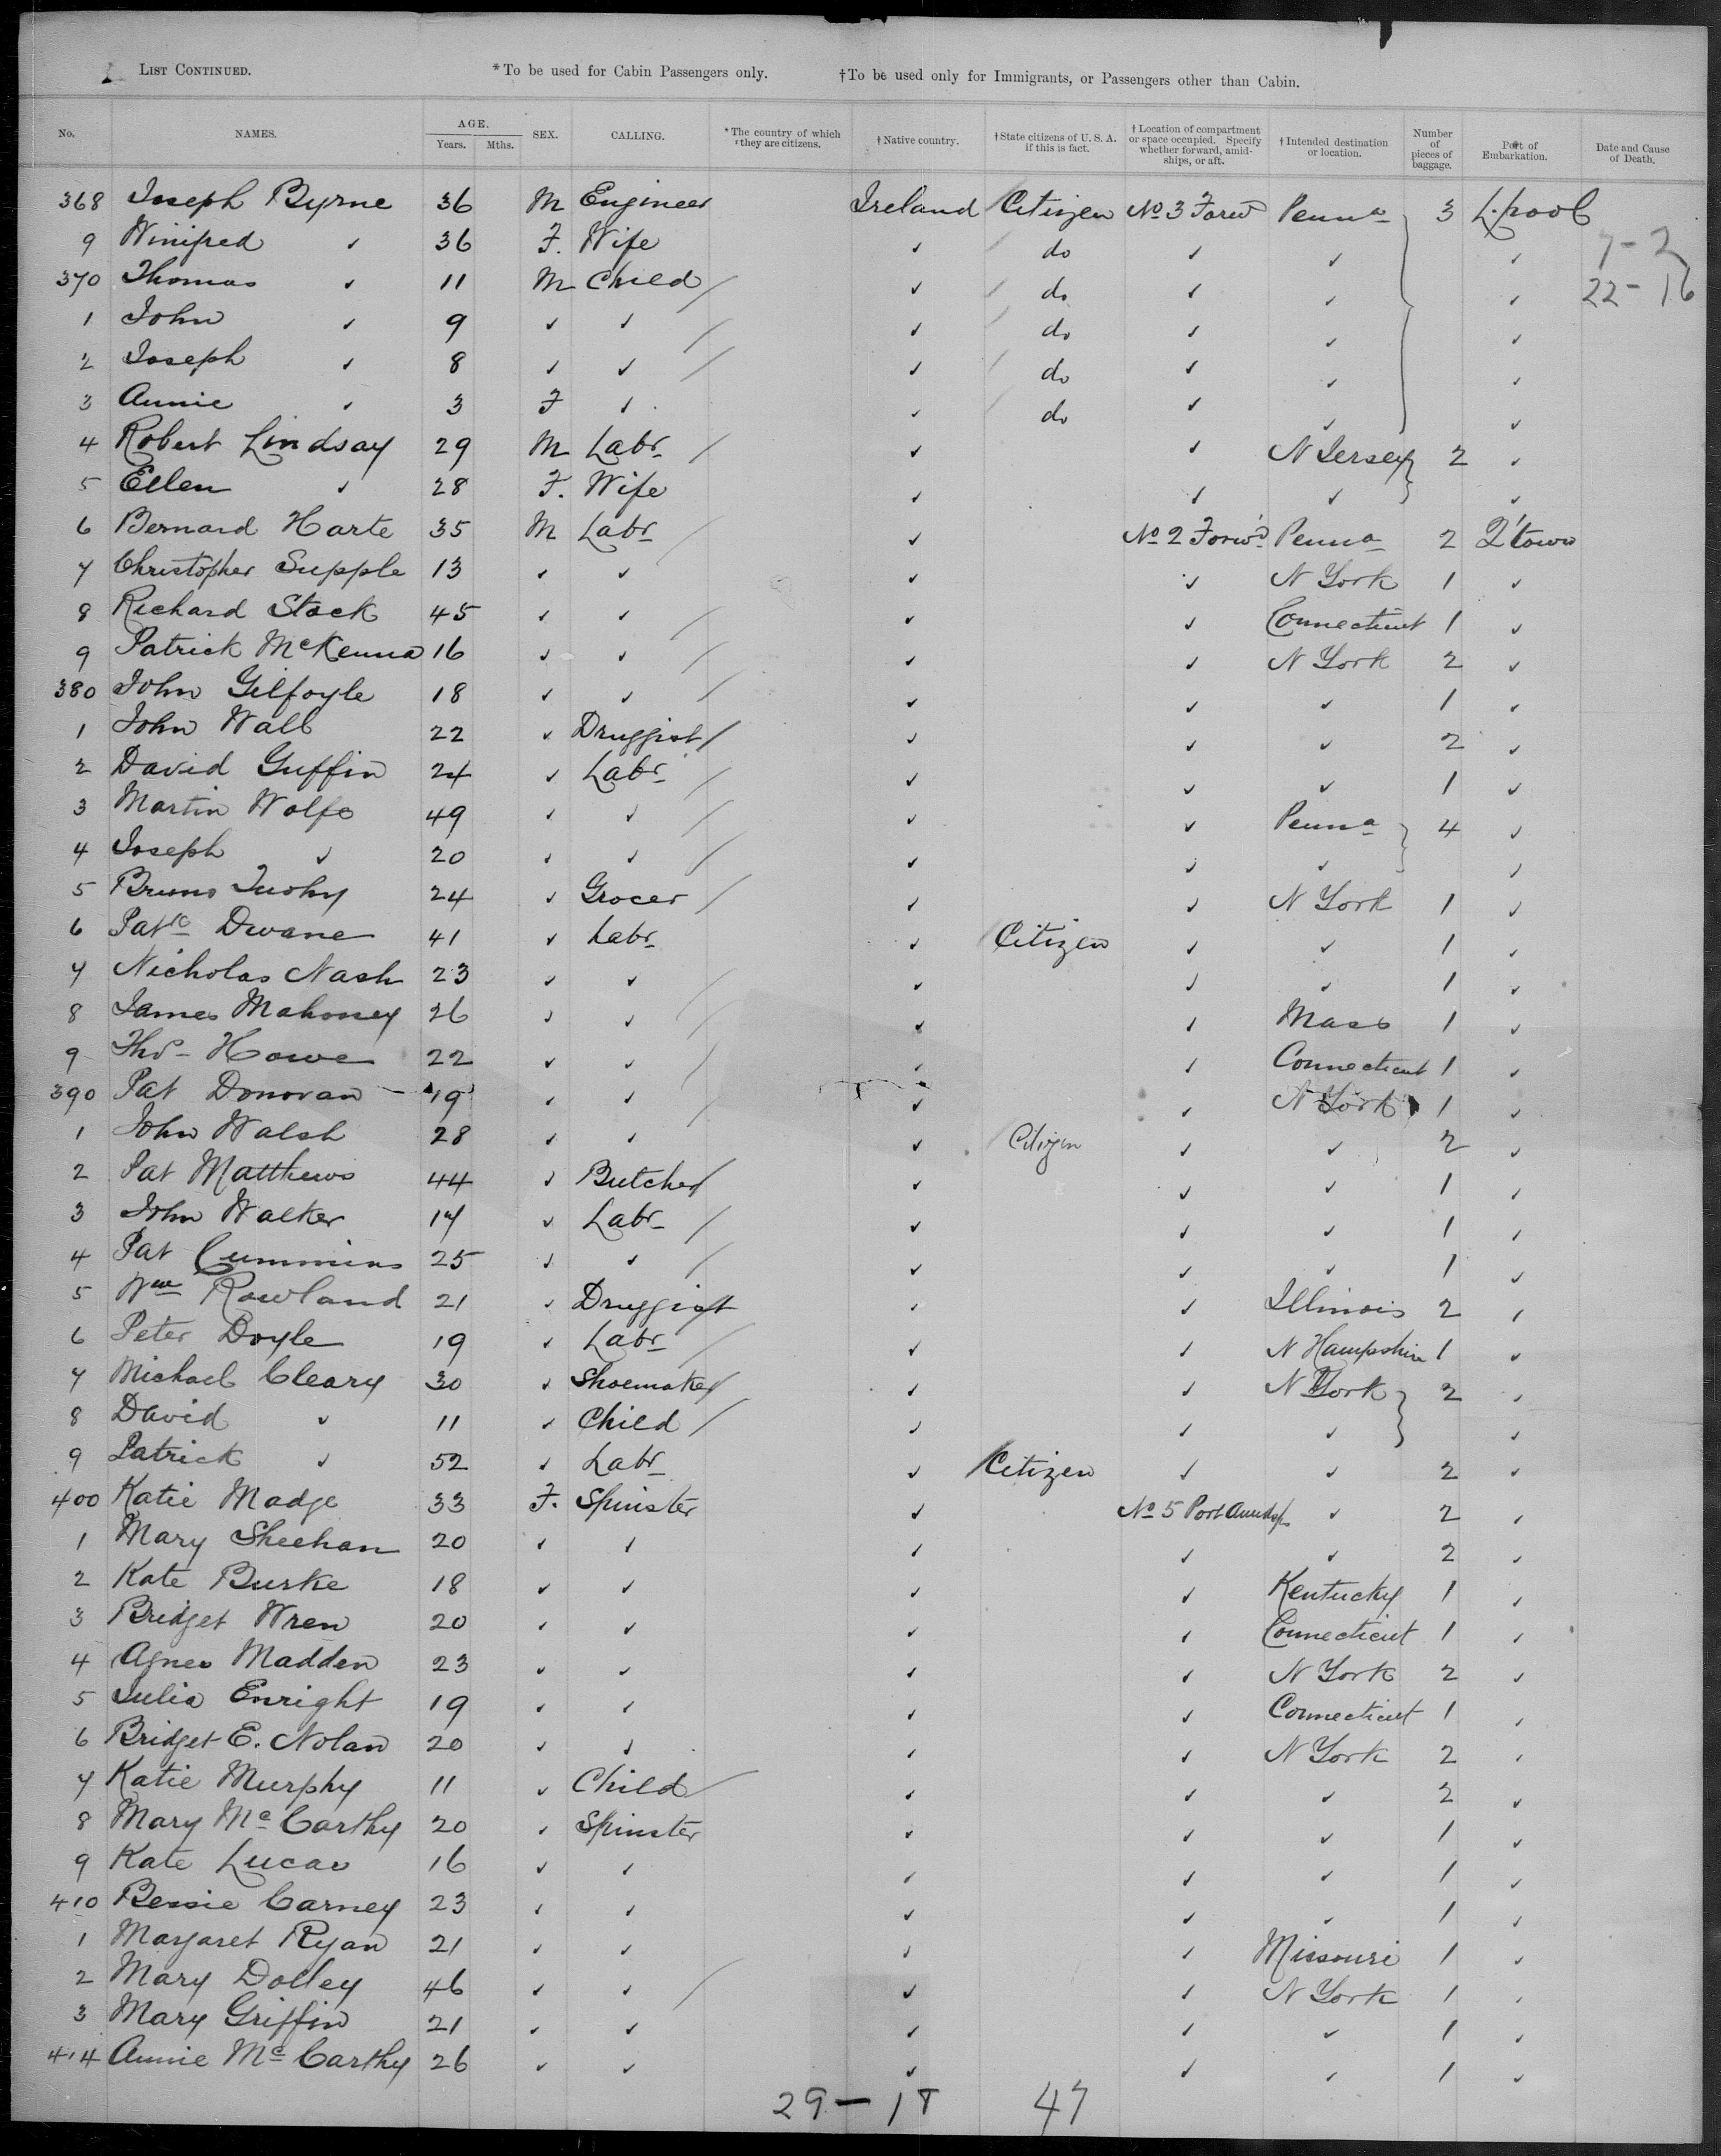 LIST CONTINUED. *To be used for Cabin Passengers only. †To be used only for Immigrants, or Passengers other than Cabin.
No. NAMES. AGE. Years. Mths. SEX. CALLING. *The country of which they are citizens. †Native country. †State citizens of U. S. A. if this is fact. †Location of compartment or space occupied. Specify whether forward, amidships, or aft. †Intended destination or location. Number of pieces of baggage. Port of Embarkation. Date and Cause of Death.
368 Joseph Byrne 36 M Engineer Ireland Citizen No 3 Forwd Penna 3 L.pool
9 Winifred ✓ 36 F. Wife ✓ do ✓ ✓ ✓ 7-2
370 Thomas ✓ 11 M Child ✓ do ✓ ✓ ✓ 22-16
1 John ✓ 9 ✓ ✓ ✓ do ✓ ✓ ✓
2 Joseph ✓ 8 ✓ ✓ ✓ do ✓ ✓ ✓
3 Annie ✓ 3 F ✓ ✓ do ✓ ✓ ✓
4 Robert Lindsay 29 M Labr ✓ ✓ N Jersey 2 ✓
5 Ellen ✓ 28 F. Wife ✓ ✓ ✓ ✓
6 Bernard Harte 35 M Labr ✓ No 2 Forwd Penna 2 Q'town
7 Christopher Supple 13 ✓ ✓ ✓ ✓ N York 1 ✓
8 Richard Stack 45 ✓ ✓ ✓ ✓ Connecticut 1 ✓
9 Patrick McKenna 16 ✓ ✓ ✓ ✓ N York 2 ✓
380 John Gilfoyle 18 ✓ ✓ ✓ ✓ ✓ 1 ✓
1 John Wall 22 ✓ Druggist ✓ ✓ ✓ 2 ✓
2 David Guffin 24 ✓ Labr ✓ ✓ ✓ 1 ✓
3 Martin Wolfe 49 ✓ ✓ ✓ ✓ Penna 4 ✓
4 Joseph ✓ 20 ✓ ✓ ✓ ✓ ✓ ✓
5 Bruno Tuohy 24 ✓ Grocer ✓ ✓ N York 1 ✓
6 Patk Dwane 41 ✓ Labr ✓ Citizen ✓ ✓ 1 ✓
7 Nicholas Nash 23 ✓ ✓ ✓ ✓ ✓ 1 ✓
8 James Mahoney 26 ✓ ✓ ✓ ✓ Mass 1 ✓
9 Thos Howe 22 ✓ ✓ ✓ ✓ Connecticut 1 ✓
390 Pat Donovan 19 ✓ ✓ ✓ ✓ N York 1 ✓
1 John Walsh 28 ✓ ✓ ✓ Citizen ✓ ✓ 2 ✓
2 Pat Matthews 44 ✓ Butcher ✓ ✓ ✓ 1 ✓
3 John Walker 17 ✓ Labr ✓ ✓ ✓ 1 ✓
4 Pat Cummins 25 ✓ ✓ ✓ ✓ ✓ 1 ✓
5 Wm Rowland 21 ✓ Druggist ✓ ✓ Illinois 2 ✓
6 Peter Doyle 19 ✓ Labr ✓ ✓ N Hampshire 1 ✓
7 Michael Cleary 30 ✓ Shoemaker ✓ ✓ N York 2 ✓
8 David ✓ 11 ✓ Child ✓ ✓ ✓ ✓
9 Patrick ✓ 52 ✓ Labr ✓ Citizen ✓ ✓ 2 ✓
400 Katie Madge 33 F. Spinster ✓ No 5 Port Amdsps ✓ 2 ✓
1 Mary Sheehan 20 ✓ ✓ ✓ ✓ ✓ 2 ✓
2 Kate Burke 18 ✓ ✓ ✓ ✓ Kentucky 1 ✓
3 Bridget Wren 20 ✓ ✓ ✓ ✓ Connecticut 1 ✓
4 Agnes Madden 23 ✓ ✓ ✓ ✓ N York 2 ✓
5 Julia Enright 19 ✓ ✓ ✓ ✓ Connecticut 1 ✓
6 Bridget E. Nolan 20 ✓ ✓ ✓ ✓ N York 2 ✓
7 Katie Murphy 11 ✓ Child ✓ ✓ ✓ 2 ✓
8 Mary McCarthy 20 ✓ Spinster ✓ ✓ ✓ 1 ✓
9 Kate Lucas 16 ✓ ✓ ✓ ✓ ✓ 1 ✓
410 Bessie Carney 23 ✓ ✓ ✓ ✓ ✓ 1 ✓
1 Margaret Ryan 21 ✓ ✓ ✓ ✓ Missouri 1 ✓
2 Mary Dolley 46 ✓ ✓ ✓ ✓ N York 1 ✓
3 Mary Griffin 21 ✓ ✓ ✓ ✓ ✓ 1 ✓
414 Annie McCarthy 26 ✓ ✓ ✓ ✓ ✓ 1 ✓
29-18 47